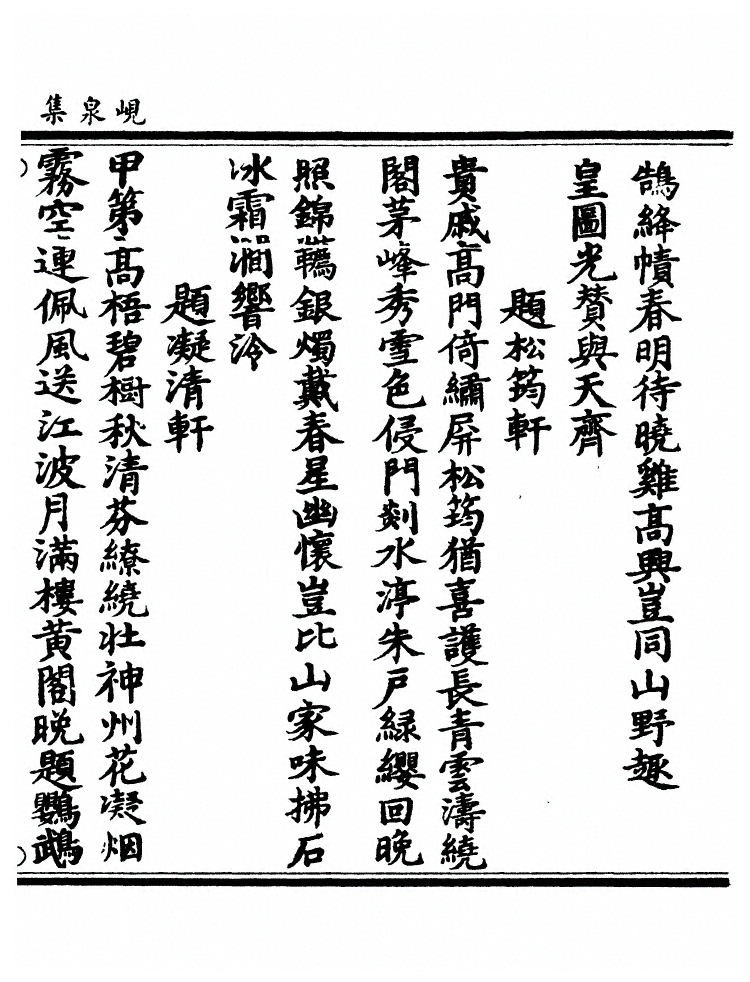 峴泉集
鵠絳幘春明待曉雞高興豈同山野趣
皇圖光贊與天齊
題松筠軒
貴戚高門倚繡屏松筠猶喜護長青雲濤繞
閣茅峰秀雪色侵門剡水渟朱戶緑纓回晚
照錦韉銀燭戴春星幽懷豈比山家味拂石
冰霜澗響泠
題凝清軒
甲第高梧碧樹秋清芬繚繞壯神州花凝烟
霧空連佩風送江波月滿樓黃閣晚題鸚鵡